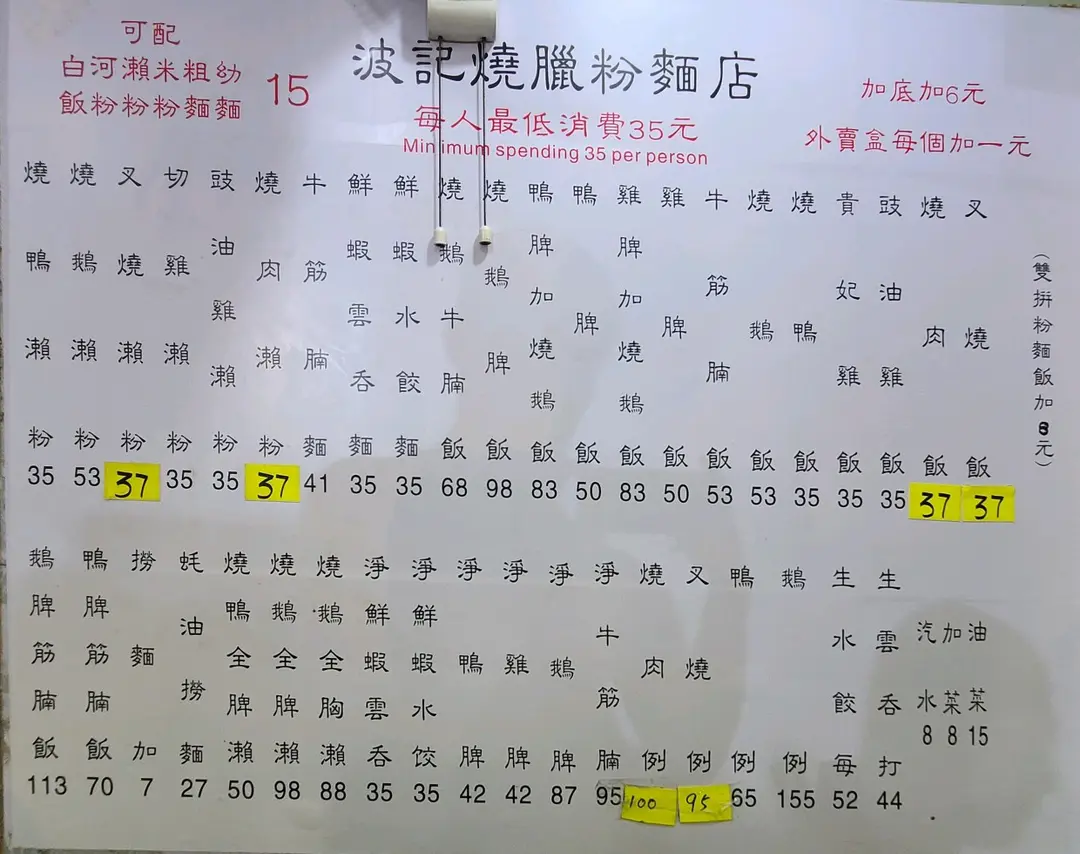 可配
白河瀨米粗幼
飯粉粉粉麵麵
15
波記燒臘粉麵店
每人最低消費35元
Minimum spending 35 per person
加底加6元
外賣盒每個加一元
燒鴨瀨粉 35
燒鵝瀨粉 53
叉燒瀨粉 37
切雞瀨粉 35
豉油雞瀨粉 35
燒肉瀨粉 37
牛筋腩麵 41
鮮蝦雲吞麵 35
鮮蝦水餃麵 35
燒鵝牛腩飯 68
燒鵝脾飯 98
鴨脾加燒鵝飯 83
鴨脾飯 50
雞脾加燒鵝飯 83
雞脾飯 50
牛筋腩飯 53
燒鵝飯 53
燒鴨飯 35
貴妃雞飯 35
豉油雞飯 35
燒肉飯 37
叉燒飯 37
(雙拼粉麵飯加8元)
鵝脾筋腩飯 113
鴨脾筋腩飯 70
撈麵加 7
蚝油撈麵 27
燒鴨全脾瀨 50
燒鵝全脾瀨 98
燒鵝全胸瀨 88
淨鮮蝦雲吞 35
淨鮮蝦水饺 35
淨鴨脾 42
淨雞脾 42
淨鵝脾 87
淨牛筋腩 95
燒肉例 100
叉燒例 95
鴨例 65
鵝例 155
生水餃每 52
生雲吞打 44
汽水 8
加菜 8
油菜 15